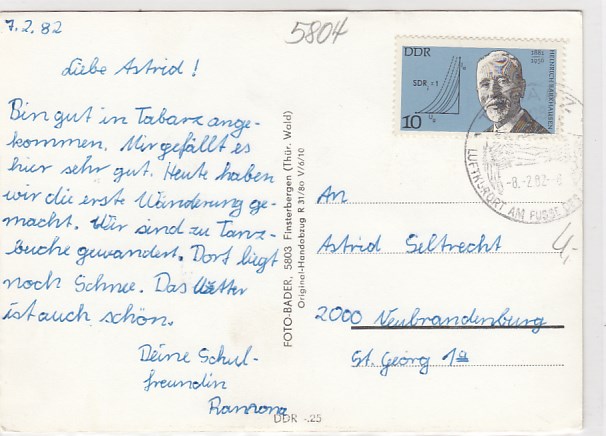 7.2.82
5804
Liebe Astrid!
Bin gut in Tabarz ange-
kommen. Mir gefällt es
hier sehr gut. Heute haben
wir die erste Wanderung ge-
macht. Wir sind zu Tanz-
buche gewandert. Dort liegt
noch Schnee. Das Wetter
ist auch schön.
Deine Schul-
freundin
Ramona
FOTO-BADER, 5803 Finsterbergen (Thür. Wald)
Original-Handabzug R 31/80 V/6/10
DDR -.25
DDR
SDR =1
10
1881
1956
HEINRICH BARKHAUSEN
-8.-2.82-
LUFTKURORT AM FUSSE DES
An
Astrid Seltrecht
4,-
2000 Neubrandenburg
St. Georg 1a